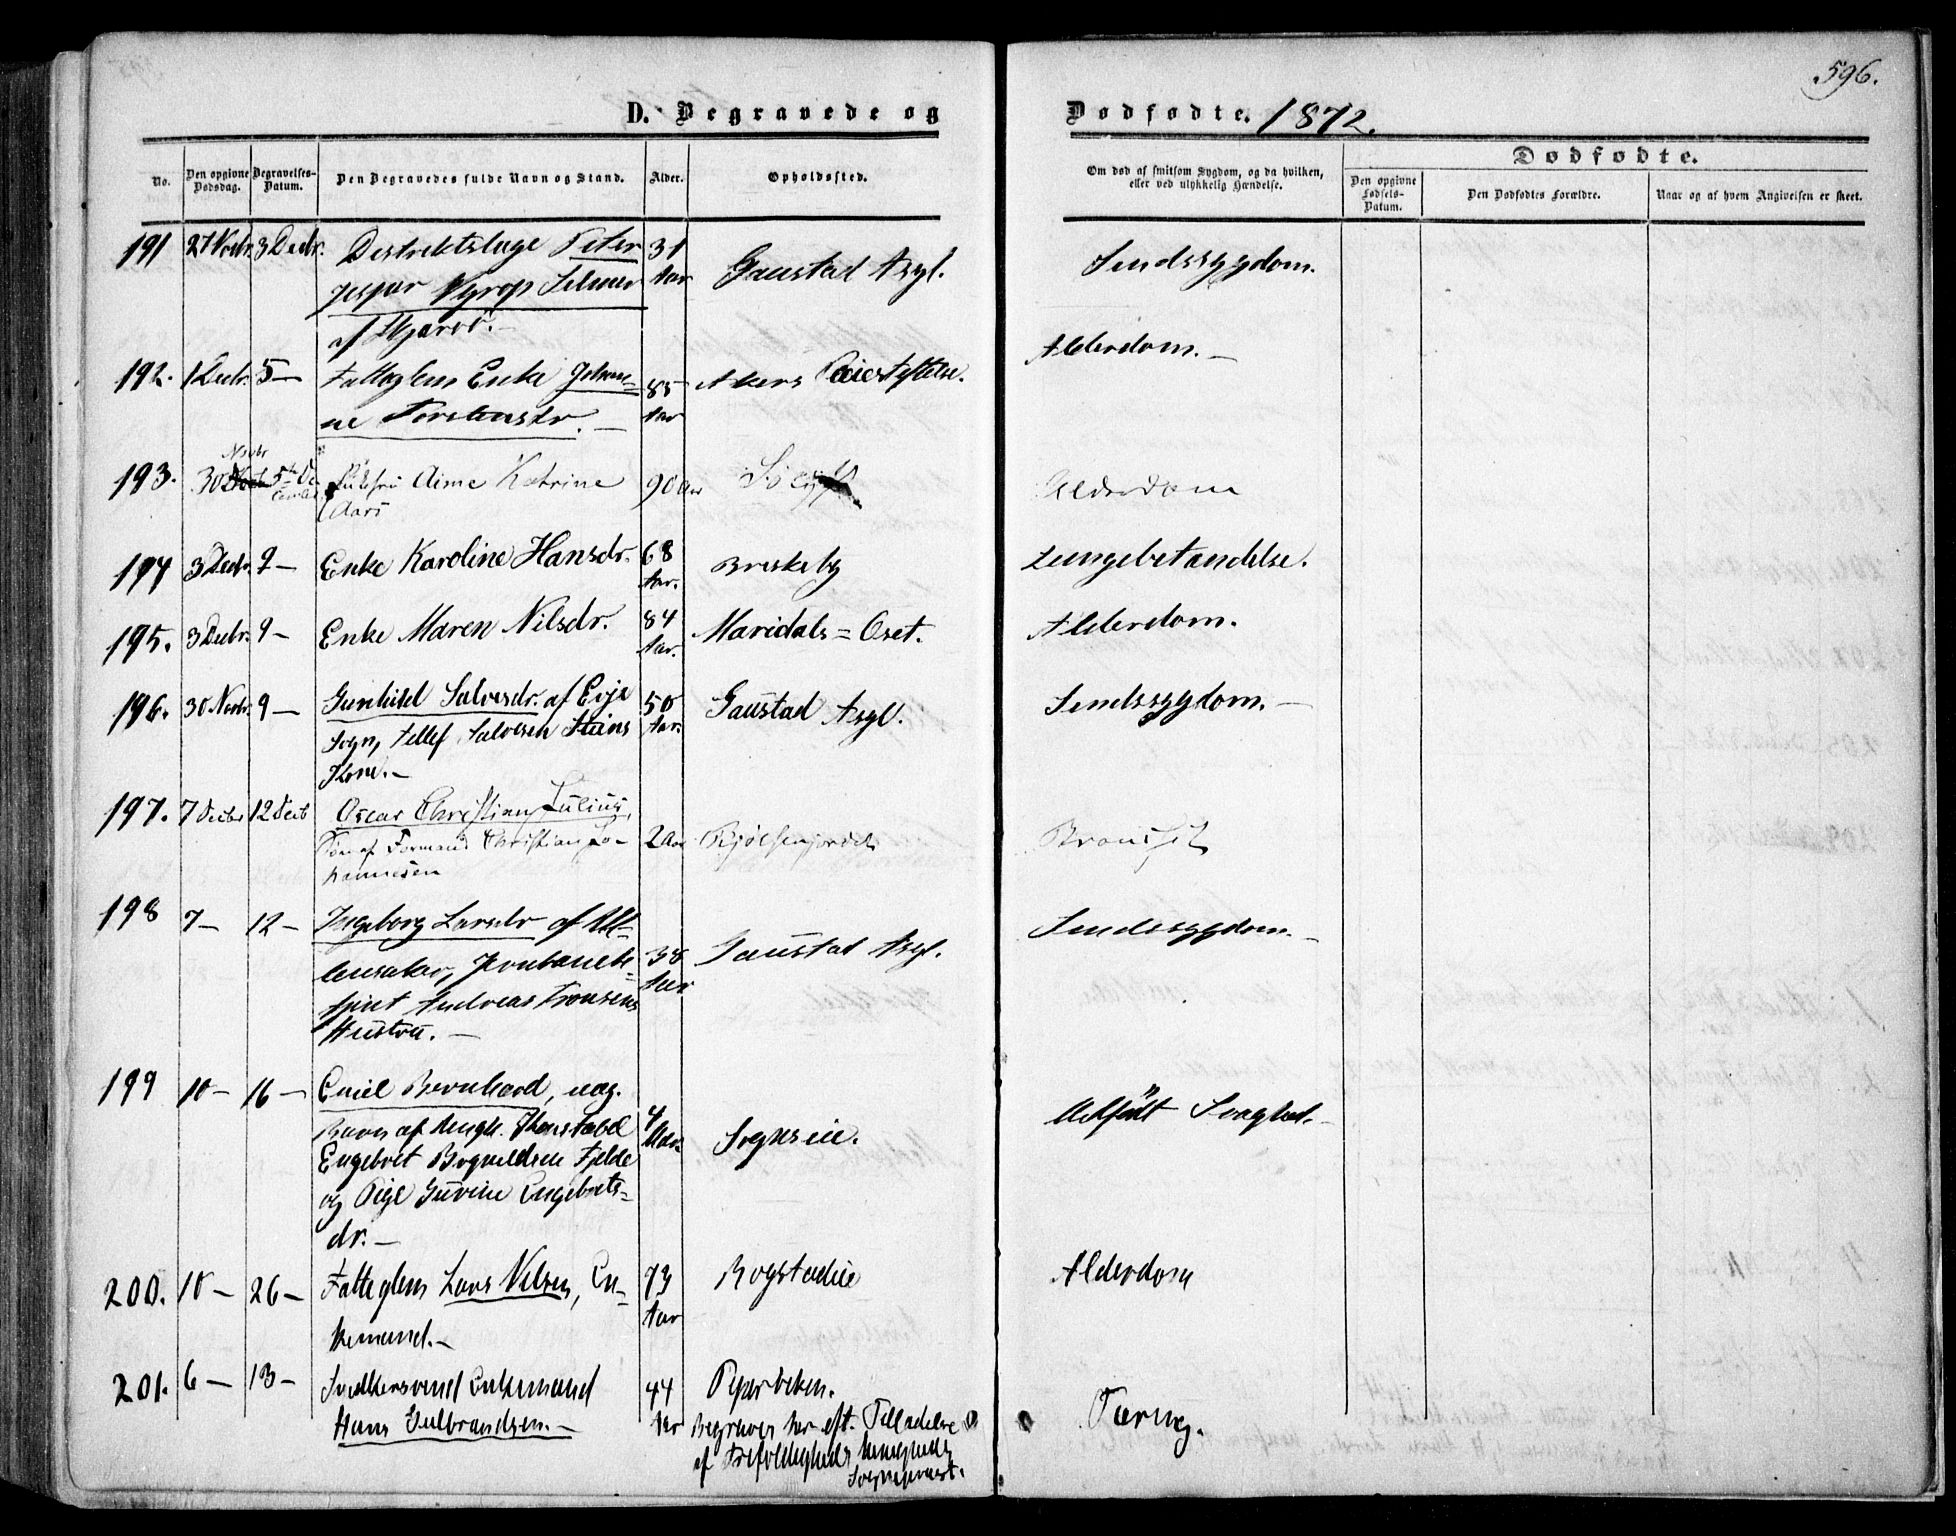 596.
D. Begravede og
Dødfødte. 1872.
No.
Den opgivne Dødsdag.
Begravelses-Datum.
Den Begravedes fulde Navn og Stand.
Alder.
Opholdssted.
Om død af smitsom Sygdom, og da hvilken, eller ved ulykkelig Hændelse.
Dødfødte.
Den opgivne Fødsels-Datum.
Den Dødfødtes Forældre.
Naar og af hvem Angivelsen er skeet.
191 27 Novbr. 3 Decbr. Destriktslæge Peter 31 Aar Gaustad Asyl. Sindssygdom.
Jesper Nyrop Selmer
af
192. 1 Decbr. 5 — Fattiglem Enke Johan= 85 Aar Akers Pleiestiftelse. Alderdom. —
ne Torstensdr. —
193. 30 Novbr 5te December Aime Katrine 90 Aar Alderdom
Aars
194 3 Decbr. 9 — Enke Karoline Hansdr. 68 Aar. Briskeby Lungebetændelse.
195. 3 Decbr. 9 — Enke Maren Nilsdr. 84 Aar. Maridals=Oset. Alderdom.
196. 30 Novbr. 9 — Gunhild Salvesdr. af Evje 50 Aar. Gaustad Asyl. Sindssygdom. —
Sogn, Tellef Salvesen Steins
Kone. —
197. 7 Decbr 12 Decb Oscar Christian Julius, 2 Aar Bjølsenjordet
Søn af Formand Christian Jo-
hannesen
198 7 — 12 — Ingeborg Larsdr af Ul= 38 Aar Gaustad Asyl. Sindssygdom. —
lensaker, Jernbanebe=
tjent Andreas Tronsens
Hustru. —
199 10 — 16 — Emil Bernhard, uæg. 4 Sognseie. Medfødt Svaghed. —
Barn af Ungk. Konstabel
Engebret Bognildsen Fjelde
og Pige Gurine Engebrets=
dr. —
200. 10 — 26 — Fattiglem Lars Nilsen, En= 73 Aar Bogstadeie Alderdom
kemand. —
201. 6 — 13 — Snedkersvend Enkemand 44 Aar Piperviken. Tæring.
Hans Gulbrandsen. —
Begraves her eft. Tilladelse
af Trefoldigheds Menigheds
Sognepræst.